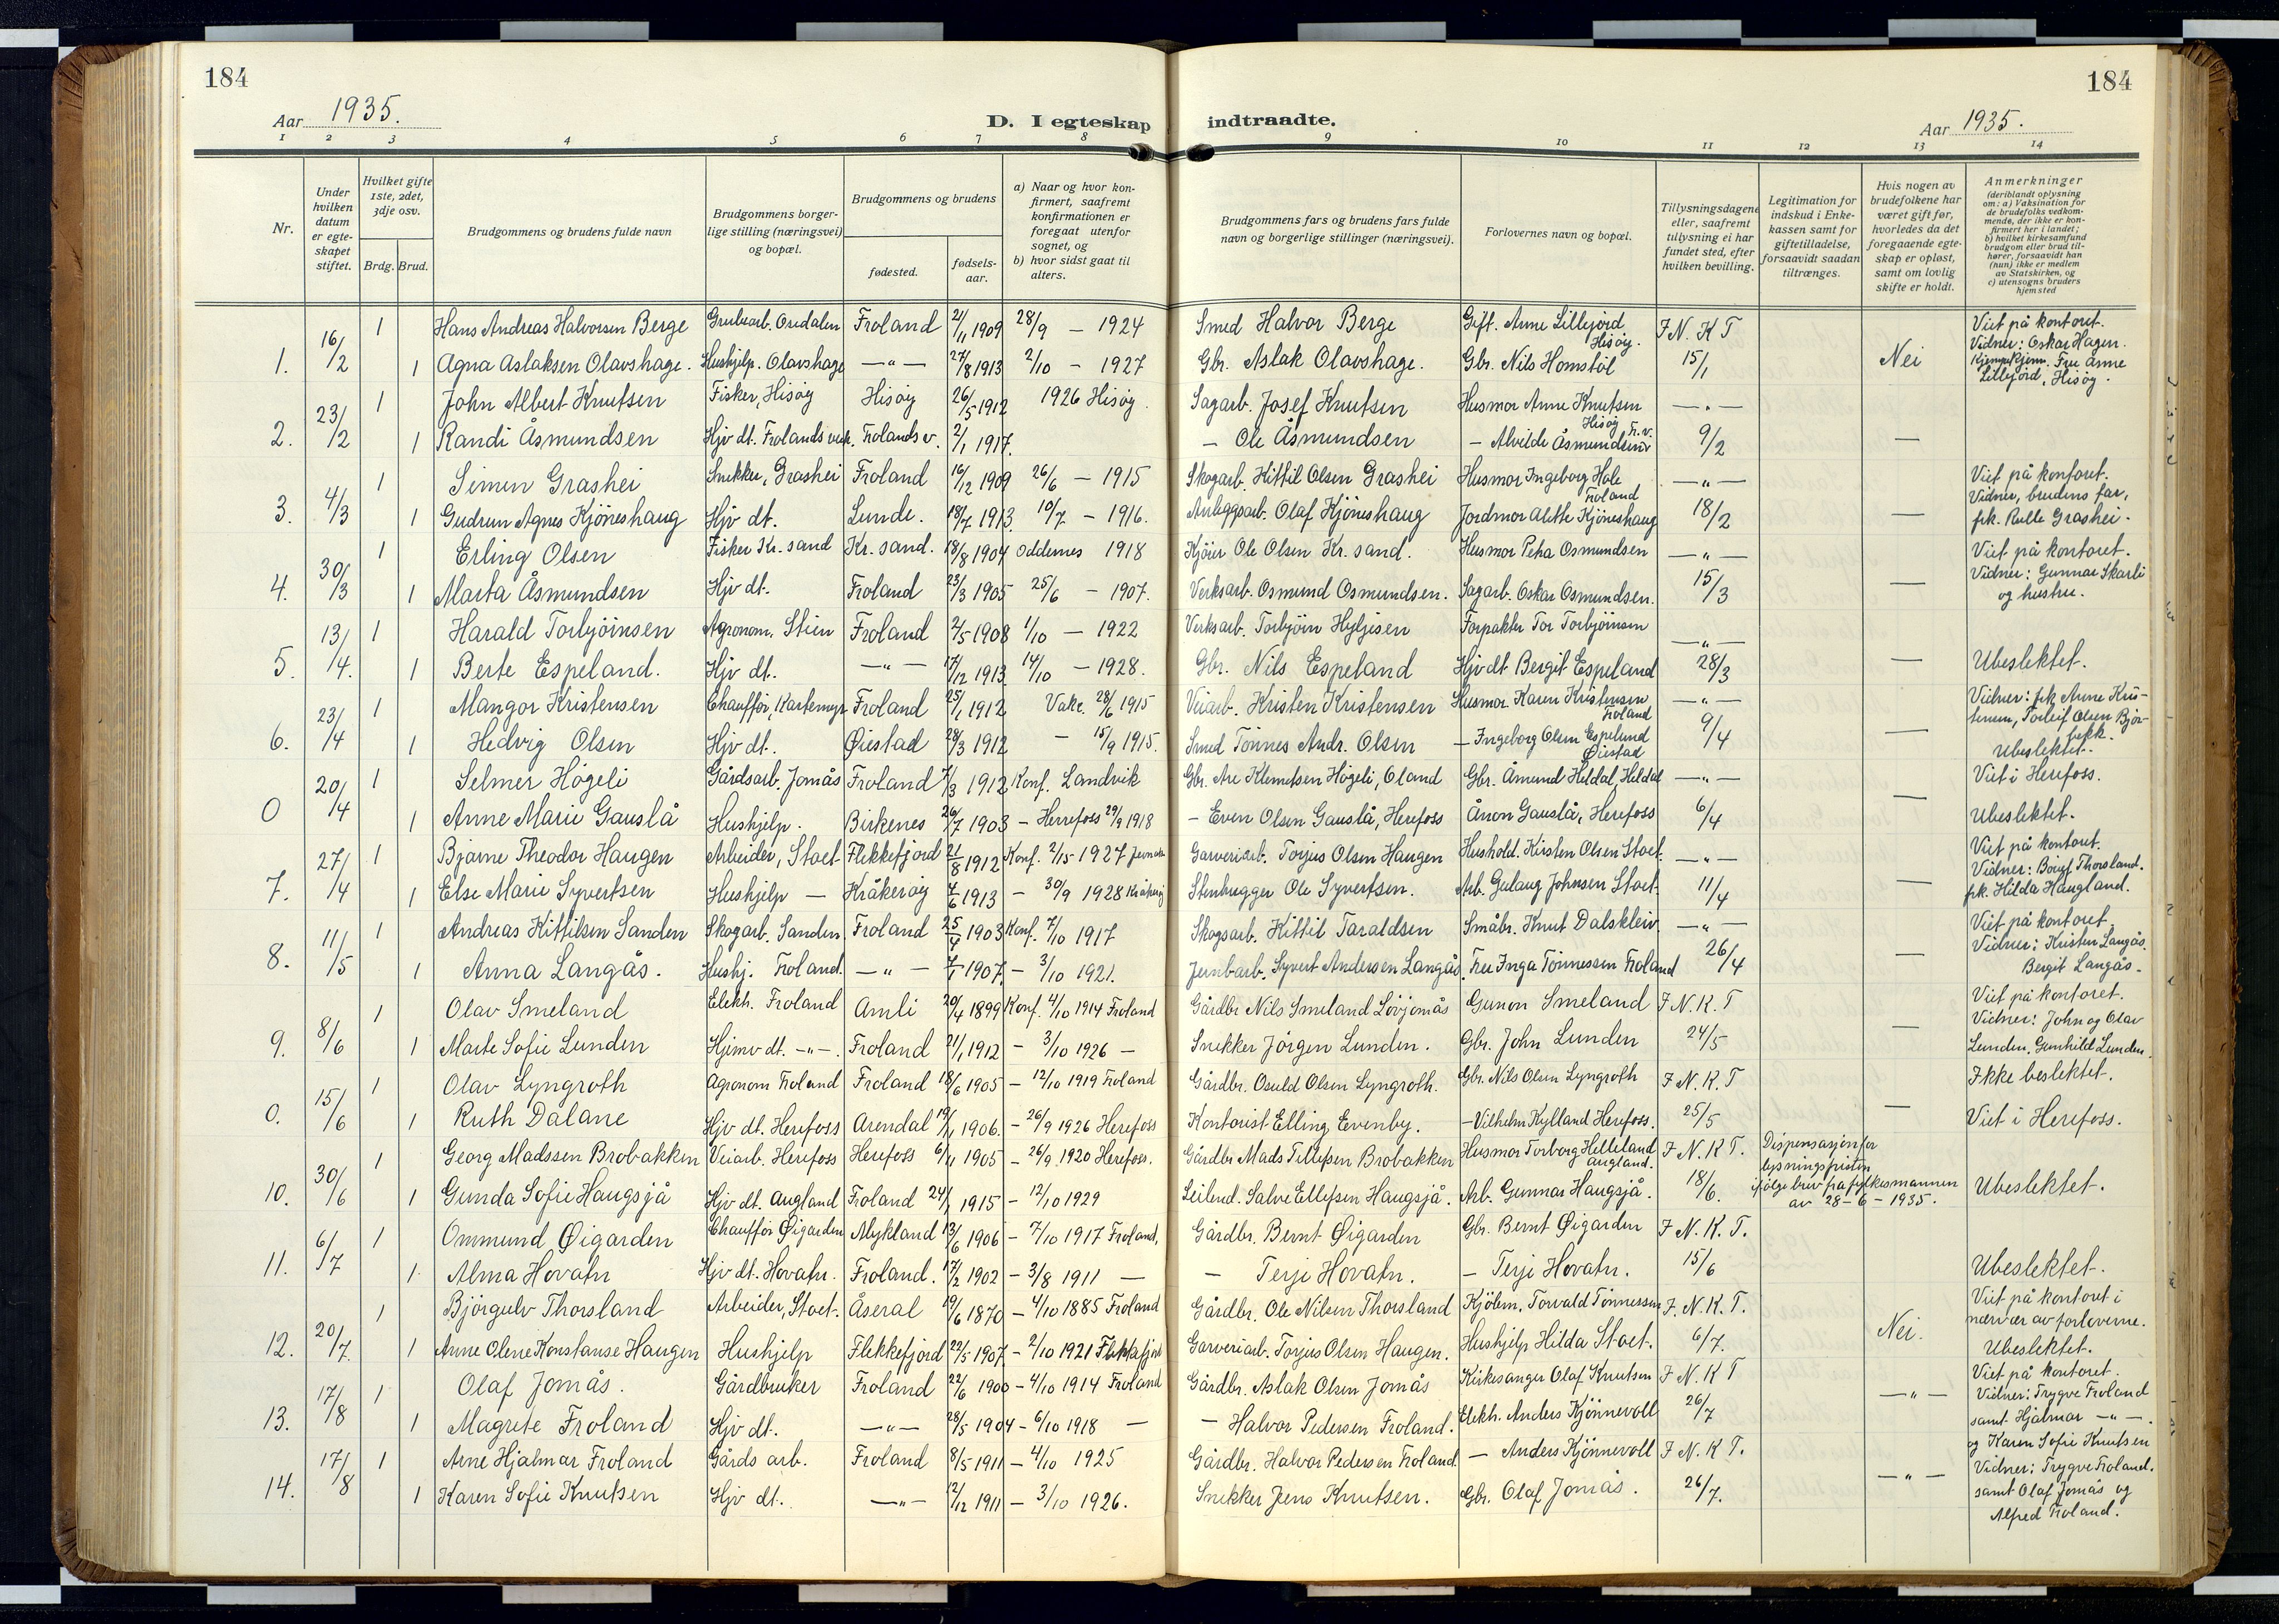 184
184
Aar 1935.
D. I egteskap indtraadte.
Aar 1935.
1 2 3 4 5 6 7 8 9 10 11 12 13 14
Nr.
Under hvilken datum er egteskapet stiftet.
Hvilket gifte 1ste, 2det, 3dje osv.
Brdg. Brud.
Brudgommens og brudens fulde navn
Brudgommens borgerlige stilling (næringsvei) og bopæl.
Brudgommens og brudens
fødested.
fødselsaar.
a) Naar og hvor konfirmert, saafremt konfirmationen er foregaat utenfor sognet, og
b) hvor sidst gaat til alters.
Brudgommens fars og brudens fars fulde navn og borgerlige stillinger (næringsvei).
Forlovernes navn og bopæl.
Tillysningsdagene eller, saafremt tillysning ei har fundet sted, efter hvilken bevilling.
Legitimation for indskud i Enkekassen samt for giftetilladelse, forsaavidt saadan tiltrænges.
Hvis nogen av brudefolkene har været gift før, hvorledes da det foregaaende egteskap er opløst, samt om lovlig skifte er holdt.
Anmerkninger
(deriblandt oplysning om: a) Vaksination for de brudefolks vedkommende, der ikke er konfirmert her i landet;
b) hvilket kirkesamfund brudgom eller brud tilhører, forsaavidt han (hun) ikke er medlem av Statskirken, og
c) utensogns bruders hjemsted
1. 16/2 1 Hans Andreas Halvorsen Berge Grubearb. Osedalen Froland 21/11 1909 28/9 — 1924 Smed Halvor Berge Gift. Anne Lillejord Hisøy. F N. K T Viet på kontoret. Vidner: Oskar Hagen.
1 Agna Aslaksen Olavshage. Hushjelp. Olavshage —"— 27/8 1913 2/10 - 1927 Gbr. Aslak Olavshage. Gbr. Nils Homstöl 15/1 Nei Fru Anne Lillejord, Hisøy.
2. 23/2 1 John Albert Knutsen Fisker, Hisøy Hisøy 26/5 1912 1926 Hisøy. Sagarb. Josef Knutsen Husmor Anne Knutsen Hisøy —"—
1 Randi Åsmundsen Hjv dt. Frolands verk. Frolands v. 2/1 1917. — Ole Åsmundsen — Alvilde Åsmundsen Fr. v. 9/2 —
3. 4/3 1 Simen Grashei Snekker, Grashei Froland 16/12 1909 26/6 — 1915 Skogarb. Kittil Olsen Grashei Husmor Ingeborg Hole Froland —"— Viet på kontoret.
1 Gudrun Agnes Kjöneshaug Hjv dt. Lunde. 18/7 1913. 10/7 - 1916. Anleggsarb. Olaf Kjöneshaug Jordmor Alette Kjöneshaug 18/2 — Vidner, brudens far, frk. Rulle Grashei.
4. 30/3 1 Erling Olsen Fisker Kr. sand Kr. sand. 18/8 1904 Oddernes 1918 Kjöier Ole Olsen Kr. sand. Husmor Petra Osmundsen —"— Viet på kontoret.
1 Marta Åsmundsen Hjv dt. Froland 23/3 1905 25/6 - 1907. Verksarb. Osmund Osmundsen. Sagarb. Oskar Osmundsen. 15/3 — Vidner: Gunnar Skarli og hustru.
5. 13/4. 1 Harald Torbjöinsen Agronom, Stien Froland 2/5 1908 1/10 — 1922 Verksarb. Torbjöin Hyljesen Forpakter Tor Torbjöinsen —"—
1 Berte Espeland. Hjv dt. —"— 17/12 1913 14/10 - 1928. Gbr. Nils Espeland Hjv dt Bergit Espeland 28/3 — Ubeslektet.
6. 23/4 1 Mangor Kristensen Chaufför, Kartemyr Froland 25/1 1912 Vakc. 28/6 1915 Veiarb. Kristen Kristensen Husmor Karen Kristensen Froland —"— Vidner: frk Anne Kristensen, Torleif Olsen Bjorbekk.
1 Hedvig Olsen Hjv dt. Øiestad 28/3 1912 — 15/9 1915. Smed Tönnes Andr. Olsen — Ingeborg Olsen Espelund Øiestad 9/4 — Ubeslektet.
0 20/4 1 Selmer Högeli Gårdsarb. Jomås Froland 7/3 1912 Konf. Landvik Gbr. Are Klemetsen Högeli, Oland Gbr. Åmund Heldal, Heldal —"— Viet i Herefoss.
1 Anne Marie Gauslå Hushjelp. Birkenes 26/7 1903 — Herrefoss 29/9 1918 — Even Olsen Gauslå, Herefoss Ånon Gauslå, Herefoss 6/4 — Ubeslektet.
7. 27/4 1 Bjarne Theodor Haugen Arbeider, Stoet Flekkefjord 21/8 1912 Konf. 2/15 - 1927 Garveriarb. Torjus Olsen Haugen Hushold. Kirsten Olsen Stoet. —"— Viet på kontoret.
1 Else Marie Syvertsen Hushjelp — Kråkeröy 7/6 1913 — 30/9 1928 Kråkeröy Stenhugger Ole Syvertsen. Arb. Gulaug Johnsen Stoet. 11/4 — Vidner: Borgf Thorsland. frk. Hilda Haugland.
8. 11/5 1 Andreas Kittilsen Sanden Skogarb. Sanden. Froland 25/4 1903 Konf. 7/10 1917 Skogsarb. Kittil Taraldsen Småbr. Knut Dalskleiv —"— Viet på kontoret.
1 Anna Langås. Hushj. Froland. —"— 7/1 1907. — 3/10 1921. Jernbarb. Syvert Andersen Langås. Fru Inga Tönnessen Froland 26/4 — Vidner: Kristen Langås. Bergit Langås.
9. 8/6 1 Olav Smeland Elekh. Froland Amli 20/4 1899 Konf. 4/10 1914 Froland Gårdbr Nils Smeland Lövjomås Gunon Smeland F N. K. T Viet på kontoret.
1 Marte Sofie Lunden Hjemv dt. —"—. Froland 21/1 1912 — 3/10 1926 — Snekker Jörgen Lunden. Gbr. John Lunden 24/5 — Vidner: John og Olav Lunden, Gunhild Lunden.
0. 15/6 1 Olav Lyngroth Agronom Froland Froland 18/6 1905 — 12/10 1919 Froland Gårdbr. Osuld Olsen Lyngroth. Gbr. Nils Olsen Lyngroth F N. K. T Ikke beslektet.
1 Ruth Dalane Hjv dt. Herefoss Arendal 19/11 1906. — 26/9 1926 Herefoss Kontorist Elling Evenby. — Vilhelm Kylland Herefoss. 25/5 — Viet i Herefoss.
10. 30/6 1 Georg Madssen Brobakken Veiarb. Herefoss Herefoss 6/11 1905 — 26/9. 1920 Herefoss. Gårdbr Mads Tellefsen Brobakken Husmor Torborg Helleland Augland. F N. K T. Dispensasjon for lysningsfristen
1 Gunda Sofie Haugsjå Hjv dt. Augland Froland 24/1 1915 — 12/10 1929 Leilend. Salve Ellefsen Haugsjå. Arb. Gunnar Haugsjå. 18/6. ifölge brev fra fylkesmannen av 28 - 6 - 1935. Ubeslektet.
11. 6/7 1 Ommund Øigarden Chaufför Øigarden Mykland 13/6 1906 — 7/10 1917 Froland. Gårdbr. Bernt Øigarden Gbr. Bernt Øigarden F N. K. T.
1. Alma Hovatn Hjv dt. Hovatn. Froland. 17/2 1902 — 3/8 1911 — — Terje Hovatn. — Terje Hovatn. 15/6 Ubeslektet.
12. 20/7. 1 Björgulv Thorsland Arbeider, Stoet. Åseral 19/6 1870 — 4/10 1885 Froland Gårdbr. Ole Nilsen Thorsland Kjölem. Torvald Tönnessen F. N. K. T. Viet på kontoret i nærvær av forloverne.
1 Anne Olene Konstanse Haugen Hushjelp Flekkefjord 22/5 1907. — 2/10 1921 Flekkefjord Garveriarb. Torjus Olsen Haugen. Hushjelp Hilda Stoet. 6/7. Nei. Ubeslektet.
13. 17/8 1 Olaf Jomås. Gårdbruker Froland 22/6 1900 — 4/10 1914 Froland Gårdbr. Aslak Olsen Jomås Kirkesanger Olaf Knutsen F N. K T —"— Viet på kontoret. Vidner: Trygve Froland
1 Magrete Froland Hjv dt. —"— 28/5 1904 — 6/10 1918 — — Halvor Pedersen Froland. Elekh. Anders Kjönnevoll 26/7 samt Hjalmar —"—. og Karen Sofie Knutsen
14. 17/8 1 Arne Hjalmar Froland Gårds arb. Froland 8/5 1911 — 4/10 1925 Gårdbr. Halvor Pedersen Froland — Anders Kjönnevoll F N. K T. —"— Vidner: Trygve Froland.
1 Karen Sofie Knutsen Hjv dt. —"— 12/12 1911 — 3/10 1926. Snekker Jens Knutsen. Gbr. Olaf Jomås. 26/7. samt Olaf Jomås og Alfred Froland.